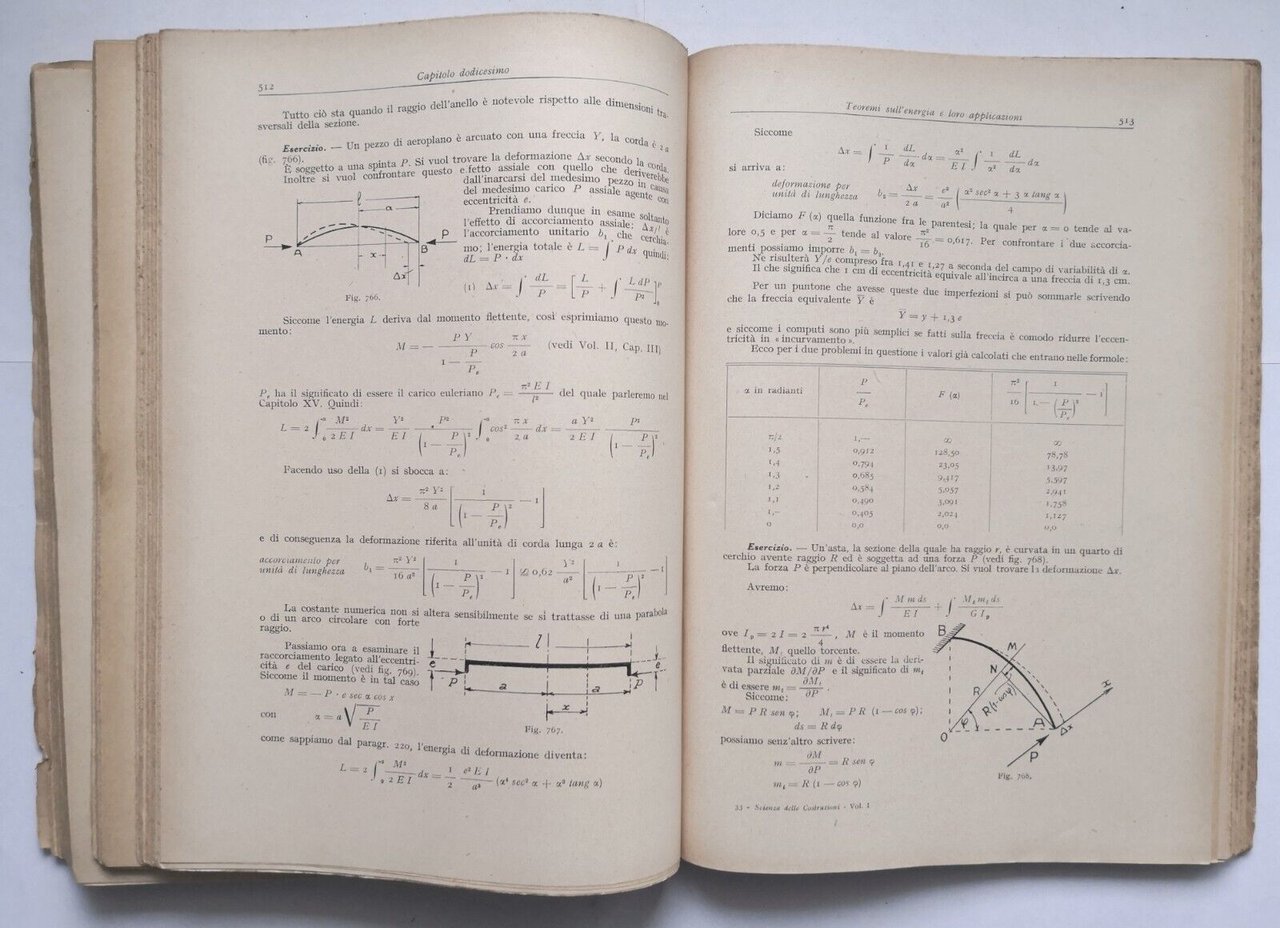 512
Capitolo dodicesimo
Tutto ciò sta quando il raggio dell'anello è notevole rispetto alle dimensioni tra-
sversali della sezione.
Esercizio. — Un pezzo di aeroplano è arcuato con una freccia Y, la corda è 2 a
(fig. 766).
È soggetto a una spinta P. Si vuol trovare la deformazione Δx secondo la corda.
Inoltre si vuol confrontare questo effetto assiale con quello che deriverebbe
dall'inarcarsi del medesimo pezzo in causa
del medesimo carico P assiale agente con
eccentricità e.
Prendiamo dunque in esame soltanto
l'effetto di accorciamento assiale; Δx/l è
l'accorciamento unitario b₁ che cerchia-
mo; l'energia totale è L = ∫ P dx quindi:
dL = P · dx
l
a
P
A
x
B
P
Δx
Fig. 766.
(1) Δx = ∫ dL/P = [L/P + ∫ L dP/P²]ᴾ₀
Siccome l'energia L deriva dal momento flettente, così esprimiamo questo mo-
mento:
M = − P Y/(1 − P/Pₑ) cos π x/2 a (vedi Vol. II, Cap. III)
Pₑ ha il significato di essere il carico euleriano Pₑ = π² E I/l² del quale parleremo nel
Capitolo XV. Quindi:
L = 2 ∫₀ᵃ M²/2 E I dx = Y²/E I P²/(1 − P/Pₑ)² ∫₀ᵃ cos² π x/2 a dx = a Y²/2 E I P²/(1 − P/Pₑ)²
Facendo uso della (1) si sbocca a:
Δx = π² Y²/8 a [1/(1 − P/Pₑ)² − 1]
e di conseguenza la deformazione riferita all'unità di corda lunga 2 a è:
accorciamento per
unità di lunghezza b₁ = π² Y²/16 a² [1/(1 − P/Pₑ)² − 1] ≅ 0,62 Y²/a² [1/(1 − P/Pₑ)² − 1]
La costante numerica non si altera sensibilmente se si trattasse di una parabola
o di un arco circolare con forte
raggio.
Passiamo ora a esaminare il
raccorciamento legato all'eccentri-
cità e del carico (vedi fig. 769).
Siccome il momento è in tal caso
M = — P · e sec α cos x
con α = a √(P/E I)
l
e
P
a
a
x
e
P
Fig. 767.
come sappiamo dal paragr. 220, l'energia di deformazione diventa:
L = 2 ∫₀ᵃ M²/2 E I dx = 1/2 e² E I/a³ (α⁴ sec² α + α³ tang α)
Teoremi sull'energia e loro applicazioni
513
Siccome
Δx = ∫ 1/P dL/dα · dα = a²/E I ∫ 1/α² dL/dα dα
si arriva a:
deformazione per
unità di lunghezza b₂ = Δx/2 a = e²/a² (α² sec² α + 3 α tang α/4)
Diciamo F (α) quella funzione fra le parentesi; la quale per α = 0 tende al va-
lore 0,5 e per α = π/2 tende al valore π²/16 = 0,617. Per confrontare i due accorcia-
menti possiamo imporre b₁ = b₂.
Ne risulterà Y/e compreso fra 1,41 e 1,27 a seconda del campo di variabilità di α.
Il che significa che 1 cm di eccentricità equivale all'incirca a una freccia di 1,3 cm.
Per un puntone che avesse queste due imperfezioni si può sommarle scrivendo
che la freccia equivalente Y̅ è
Y̅ = y + 1,3 e
e siccome i computi sono più semplici se fatti sulla freccia è comodo ridurre l'eccen-
tricità in « incurvamento ».
Ecco per i due problemi in questione i valori già calcolati che entrano nelle formole:
α in radianti P/Pₑ F (α) π²/16 [1/(1 — (P/Pₑ)² − 1]
π/2 1,— ∞ ∞
1,5 0,912 128,50 78,78
1,4 0,794 23,05 13,97
1,3 0,685 9,417 5,597
1,2 0,584 5,057 2,941
1,1 0,490 3,091 1,758
1,- 0,405 2,024 1,127
0 0,0 0,0 0,0
Esercizio. — Un'asta, la sezione della quale ha raggio r, è curvata in un quarto di
cerchio avente raggio R ed è soggetta ad una forza P (vedi fig. 768).
La forza P è perpendicolare al piano dell'arco. Si vuol trovare la deformazione Δx.
Avremo:
Δx = ∫ M m ds/E I + ∫ Mₜ mₜ ds/G Iₚ
ove Iₚ = 2 I = 2 π r⁴/4, M è il momento
flettente, Mₜ quello torcente.
Il significato di m è di essere la deri-
vata parziale ∂M/∂P e il significato di mₜ
è di essere mₜ = ∂Mₜ/∂P.
Siccome:
M = P R sen φ; Mₜ = P R (1 — cos φ);
ds = R dφ
possiamo senz'altro scrivere:
m = ∂M/∂P = R sen φ
mₜ = R (1 — cos φ)
B
M
N
R
R(1-cosφ)
φ
O
A
Δx
x
P
Fig. 768.
33 - Scienza delle Costruzioni - Vol. I